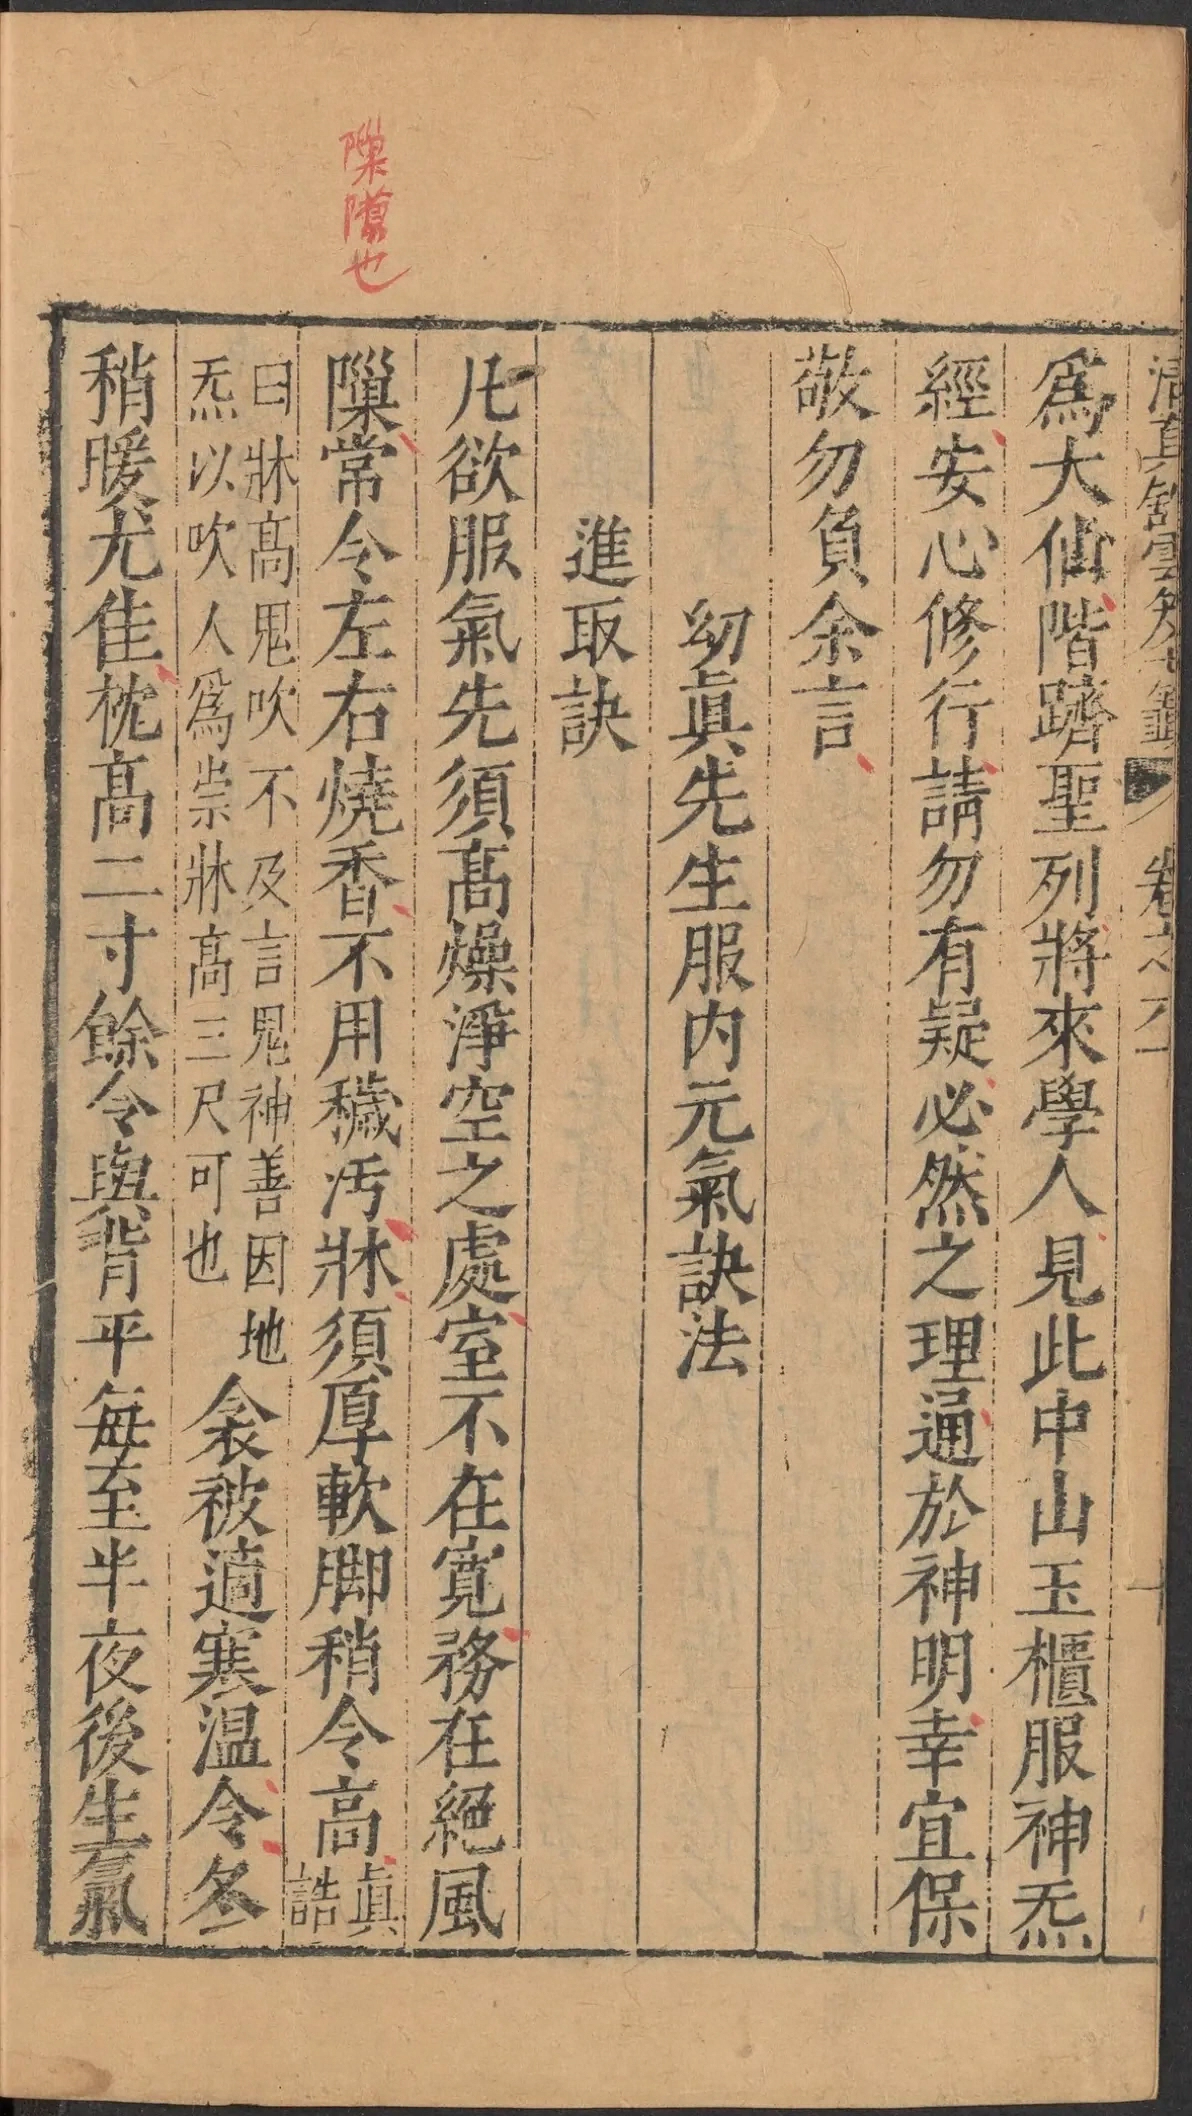 清真館雲笈七籤 卷之六十
為大仙階躋聖列將來學人見此中山玉櫃服神炁
經安心修行請勿有疑必然之理通於神明幸宜保
敬勿負余言
幼眞先生服内元氣訣法
進取訣
凡欲服氣先須髙燥淨空之處室不在寛務在絕風
隟常令左右燒香不用穢汚牀須厚軟脚稍令高眞誥
曰牀髙鬼吹不及言鬼神善因地
炁以吹人爲祟牀髙三尺可也
衾被適寒温令冬
稍暖尤佳枕髙二寸餘令與背平每至半夜後生氣